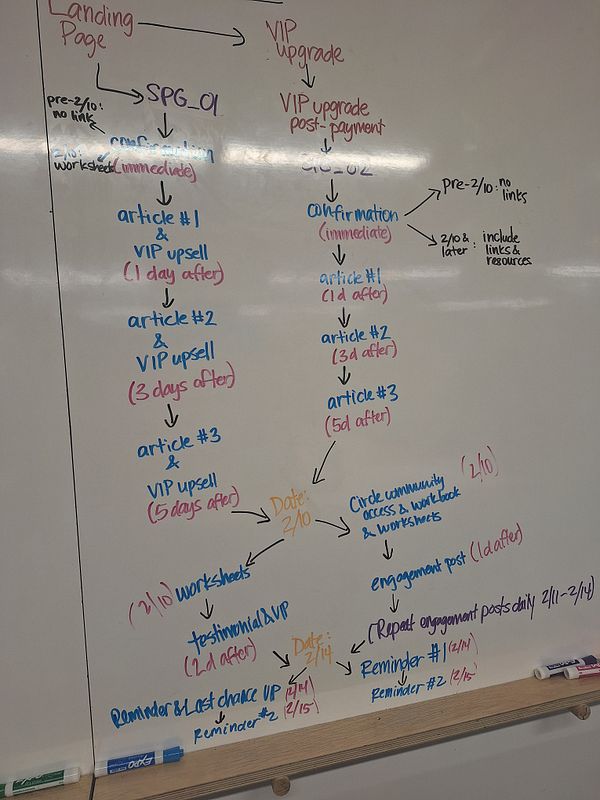 Landing
Page
VIP
upgrade
SPG_01
VIP upgrade
post-payment
pre-2/10:
no link
confirmation
(immediate)
2/10:
worksheets
confirmation
(immediate)
pre-2/10: no
links
2/10 &
later: include
links &
resources
article #1
&
VIP upsell
(1 day after)
article #1
(1d after)
article #2
&
VIP upsell
(3 days after)
article #2
(3d after)
article #3
&
VIP upsell
(5 days after)
article #3
(5d after)
Date:
2/10
Circle community
access & workbook
& worksheets
(2/10)
(2/10) worksheets
engagement post (1d after)
testimonial & VIP
(2d after)
(Repeat engagement posts daily 2/11-2/14)
Date:
2/14
Reminder & Last chance VIP (2/14)
Reminder #2 (2/15)
Reminder #1 (2/14)
Reminder #2 (2/15)
EXPO
EXPO